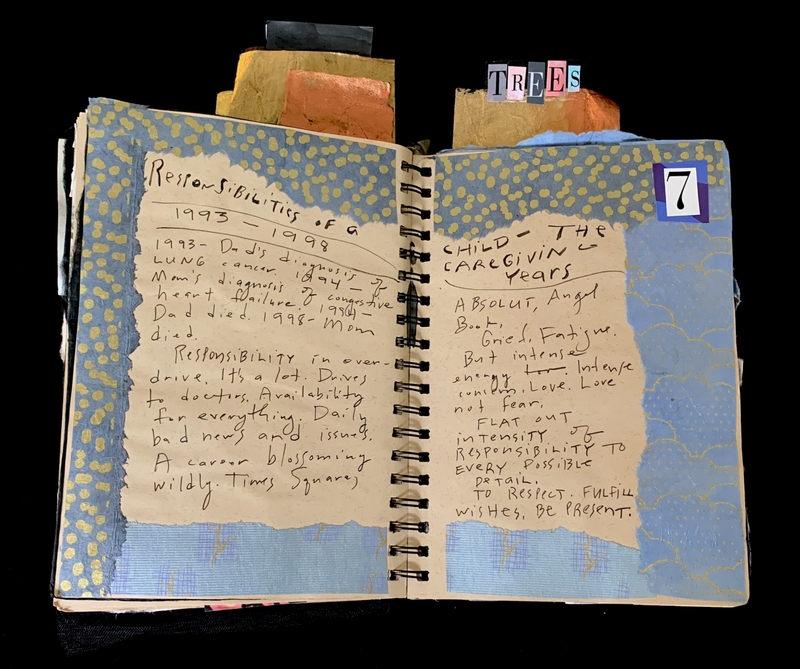 TREES
7
RESPONSIBILITIES OF A
1993 – 1998
1993- Dad's diagnosis of
LUNG cancer. 1994 –
Mom's diagnosis of congestive
heart failure. 1994-
Dad died. 1998- Mom
died.
RESPONSIBILITY in over-
drive. It's a lot. Drives
to doctors. Availability
for everything. Daily
bad news and issues.
A career blossoming
wildly. Times Square,
CHILD – THE
CAREGIVING
Years
ABSOLUT, Angel
Book.
Grief. Fatigue.
But intense
energy. Intense
concern. Love. Love
not fear.
FLAT OUT
intensity of
RESPONSIBILITY TO
EVERY POSSIBLE
DETAIL.
TO RESPECT. FULFILL
wishes. BE PRESENT.